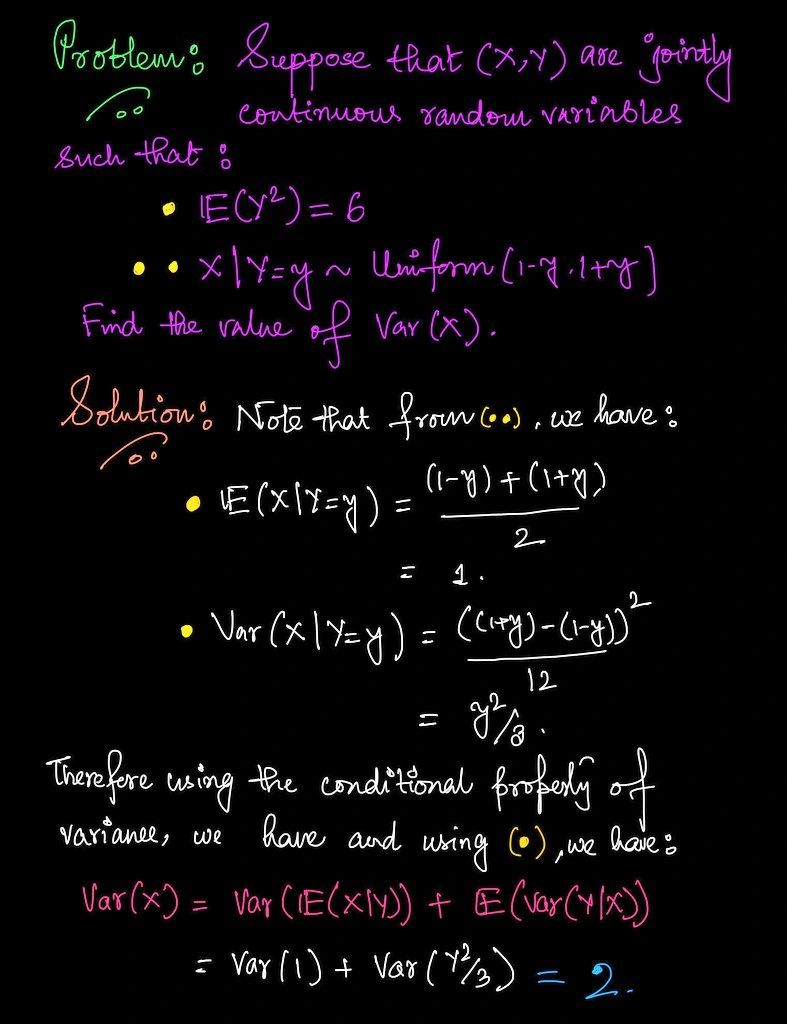 Problem: Suppose that (X,Y) are jointly
continuous random variables
such that:
• 𝔼(Y²) = 6
•• X|Y=y ~ Uniform (1-y, 1+y]
Find the value of Var(X).
Solution: Note that from (••), we have:
• 𝔼(X|Y=y) = ((1-y) + (1+y))/2
= 1.
• Var(X|Y=y) = ((1+y)-(1-y))²/12
= y²/3.
Therefore using the conditional property of
variance, we have and using (•), we have:
Var(X) = Var(𝔼(X|Y)) + 𝔼(Var(Y|X))
= Var(1) + Var(Y²/3) = 2.